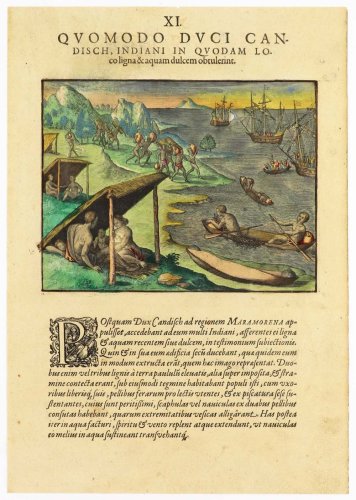 XI.
QVOMODO DVCI CAN-
DISCH, INDIANI IN QVODAM LO-
co ligna & aquam dulcem obtulerint.
POstquam Dux Candisch ad regionem MARAMORENA ap-
pulisset, accedebant ad eum multi Indiani, afferentes ei ligna
& aquam recentem siue dulcem, in testimonium subiectionis.
Quin & in sua eum ædificia secũ ducebant, qua quidem eum
in modum extructa erãt, quem hæc imago repræsentat. Duo-
bus enim vel tribus lignis à terra paululũ eleuatis, alia super imposita, & stra-
mine contecta erant, sub eiusmodi tegmine habitabant populi isti, cum vxo-
ribus liberisq́;, suis, pellibus ferarum pro lectis vtentes, & ex piscatura sese su-
stentantes, cuius sunt peritissimi, scaphulas vel nauiculas ex duabus pellibus
consutas habebant, quarum extremitatibus vesicas alligârant. Has postea
iter in aquã facturi, spiritu & vento replent atque extendunt, vt nauiculas
eo melius in aqua sustineant transvehantq́;.